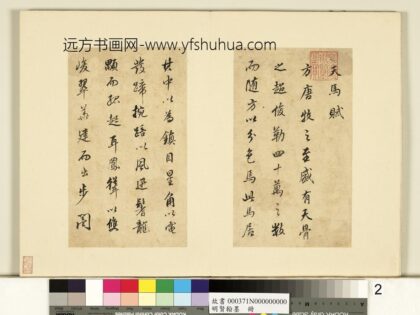 远方书画网-www.yfshuhua.com
天馬賦
方唐牧之至盛有天骨
之超俊勒四十萬之數
而随方以分色焉此馬居
其中以為鎮目星角以電
發蹄捥踣以風迅鬐龍
顒而孤起耳鳳
以
峻翠華建而出步閶
故書 000371N000000000
明賢翰墨 冊
2